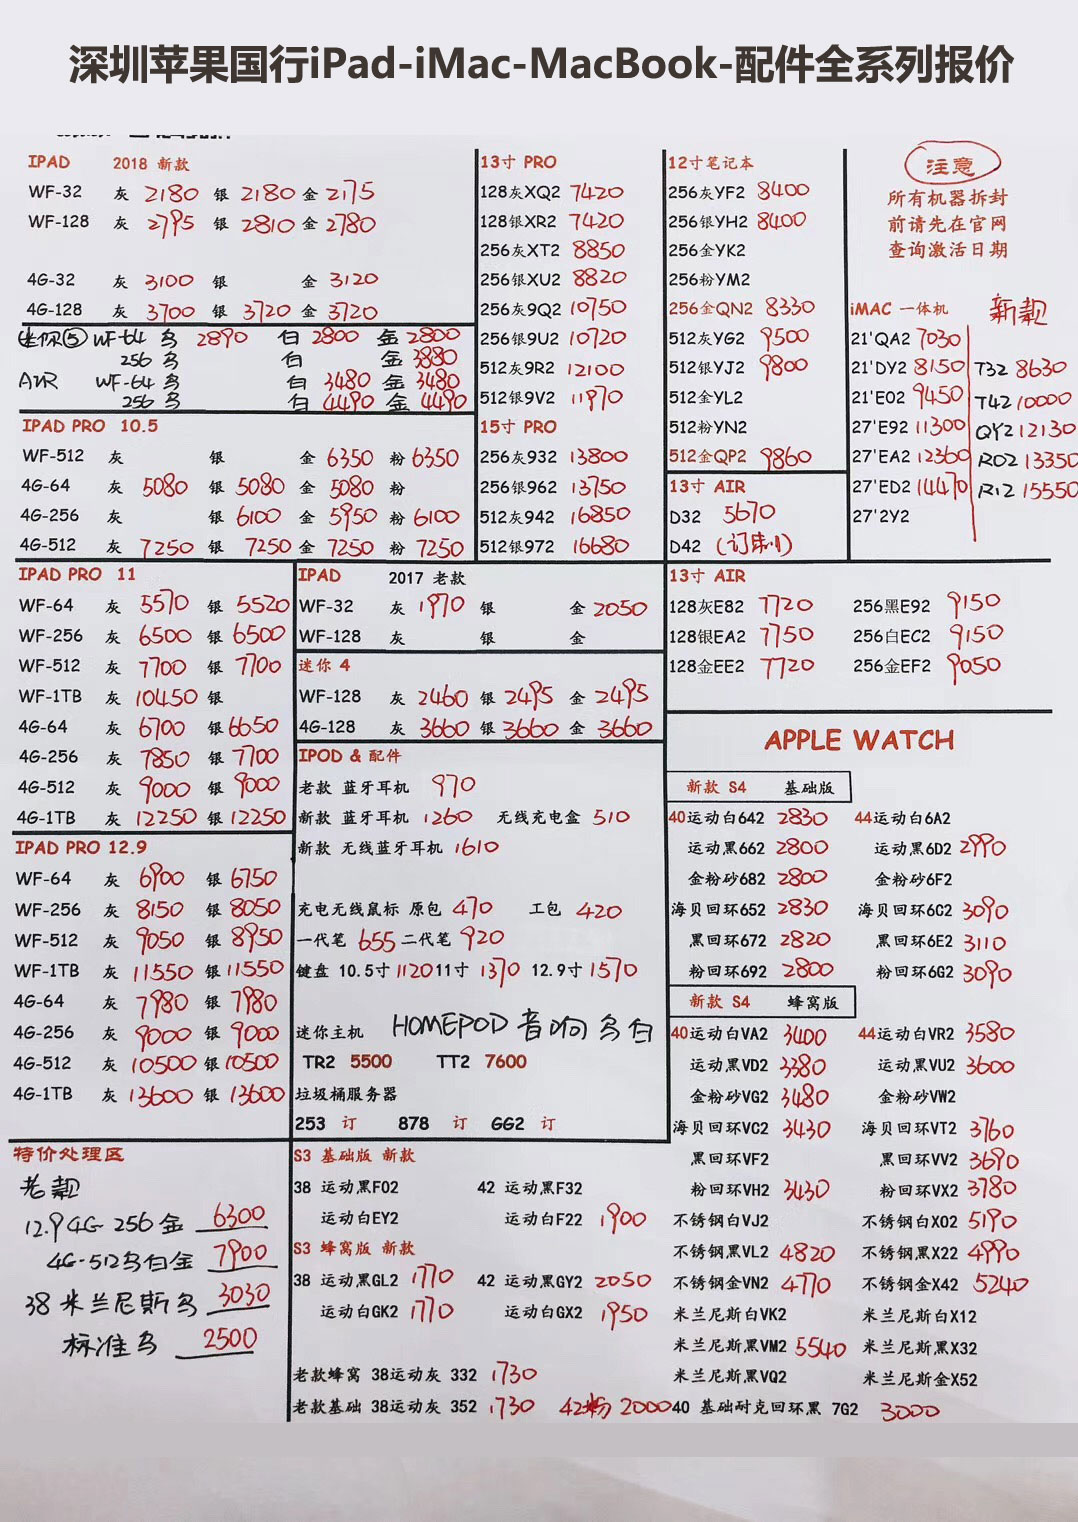 深圳苹果国行iPad-iMac-MacBook-配件全系列报价
IPAD 2018 新款
WF-32 灰 2180 银 2180 金 2175
WF-128 灰 2795 银 2810 金 2780
4G-32 灰 3100 银 金 3120
4G-128 灰 3700 银 3720 金 3720
迷你⑤ WF-64 乌 2890 白 2800 金 2800
256 乌 白 金 3880
AIR WF-64 乌 白 3480 金 3480
256 乌 白 4490 金 4490
IPAD PRO 10.5
WF-512 灰 银 金 6350 粉 6350
4G-64 灰 5080 银 5080 金 5080 粉
4G-256 灰 银 6100 金 5950 粉 6100
4G-512 灰 7250 银 7250 金 7250 粉 7250
13寸 PRO
128灰XQ2 7420
128银XR2 7420
256灰XT2 8850
256银XU2 8820
256灰9Q2 10750
256银9U2 10720
512灰9R2 12100
512银9V2 11970
15寸 PRO
256灰932 13800
256银962 13750
512灰942 16850
512银972 16680
12寸笔记本
256灰YF2 8400
256银YH2 8400
256金YK2
256粉YM2
256金QN2 8330
512灰YG2 9500
512银YJ2 9800
512金YL2
512粉YN2
512金QP2 9860
13寸 AIR
D32 5670
D42 (订制)
注意
所有机器拆封
前请先在官网
查询激活日期
iMAC 一体机 新款
21'QA2 7030
21'DY2 8150 T32 8630
21'E02 9450 T42 10000
27'E92 11300 QY2 12130
27'EA2 12360 R02 13350
27'ED2 14470 R12 15550
27'2Y2
IPAD PRO 11
WF-64 灰 5570 银 5520
WF-256 灰 6500 银 6500
WF-512 灰 7700 银 7700
WF-1TB 灰 10450 银
4G-64 灰 6700 银 6650
4G-256 灰 7850 银 7700
4G-512 灰 9000 银 9000
4G-1TB 灰 12250 银 12250
IPAD PRO 12.9
WF-64 灰 6900 银 6750
WF-256 灰 8150 银 8050
WF-512 灰 9050 银 8950
WF-1TB 灰 11550 银 11550
4G-64 灰 7980 银 7980
4G-256 灰 9000 银 9000
4G-512 灰 10500 银 10500
4G-1TB 灰 13600 银 13600
特价处理区
老款
12.9 4G-256 金 6300
4G-512乌白金 7900
38 米兰尼斯乌 3030
标准乌 2500
IPAD 2017 老款
WF-32 灰 1970 银 金 2050
WF-128 灰 银 金
迷你 4
WF-128 灰 2460 银 2495 金 2495
4G-128 灰 3660 银 3660 金 3660
IPOD & 配件
老款 蓝牙耳机 970
新款 蓝牙耳机 1260 无线充电盒 510
新款 无线蓝牙耳机 1610
充电无线鼠标 原包 470 工包 420
一代笔 655 二代笔 920
键盘 10.5寸 1120 11寸 1370 12.9寸 1570
迷你主机 HOMEPOD 音响 乌 白
TR2 5500 TT2 7600
垃圾桶服务器
253 订 878 订 GG2 订
S3 基础版 新款
38 运动黑F02 42 运动黑F32
运动白EY2 运动白F22 1900
S3 蜂窝版 新款
38 运动黑GL2 1770 42 运动黑GY2 2050
运动白GK2 1770 运动白GX2 1950
老款蜂窝 38运动灰 332 1730
老款基础 38运动灰 352 1730 42粉 2000
13寸 AIR
128灰E82 7720 256黑E92 9150
128银EA2 7750 256白EC2 9150
128金EE2 7720 256金EF2 9050
APPLE WATCH
新款 S4 基础版
40运动白642 2830 44运动白6A2
运动黑662 2800 运动黑6D2 2990
金粉砂682 2800 金粉砂6F2
海贝回环652 2830 海贝回环6C2 3090
黑回环672 2820 黑回环6E2 3110
粉回环692 2800 粉回环6G2 3090
新款 S4 蜂窝版
40运动白VA2 3400 44运动白VR2 3580
运动黑VD2 3380 运动黑VU2 3600
金粉砂VG2 3480 金粉砂VW2
海贝回环VC2 3430 海贝回环VT2 3760
黑回环VF2 黑回环VV2 3690
粉回环VH2 3430 粉回环VX2 3780
不锈钢白VJ2 不锈钢白X02 5190
不锈钢黑VL2 4820 不锈钢黑X22 4990
不锈钢金VN2 4770 不锈钢金X42 5240
米兰尼斯白VK2 米兰尼斯白X12
米兰尼斯黑VM2 5540 米兰尼斯黑X32
米兰尼斯黑VQ2 米兰尼斯金X52
40 基础耐克回环黑 7G2 3000